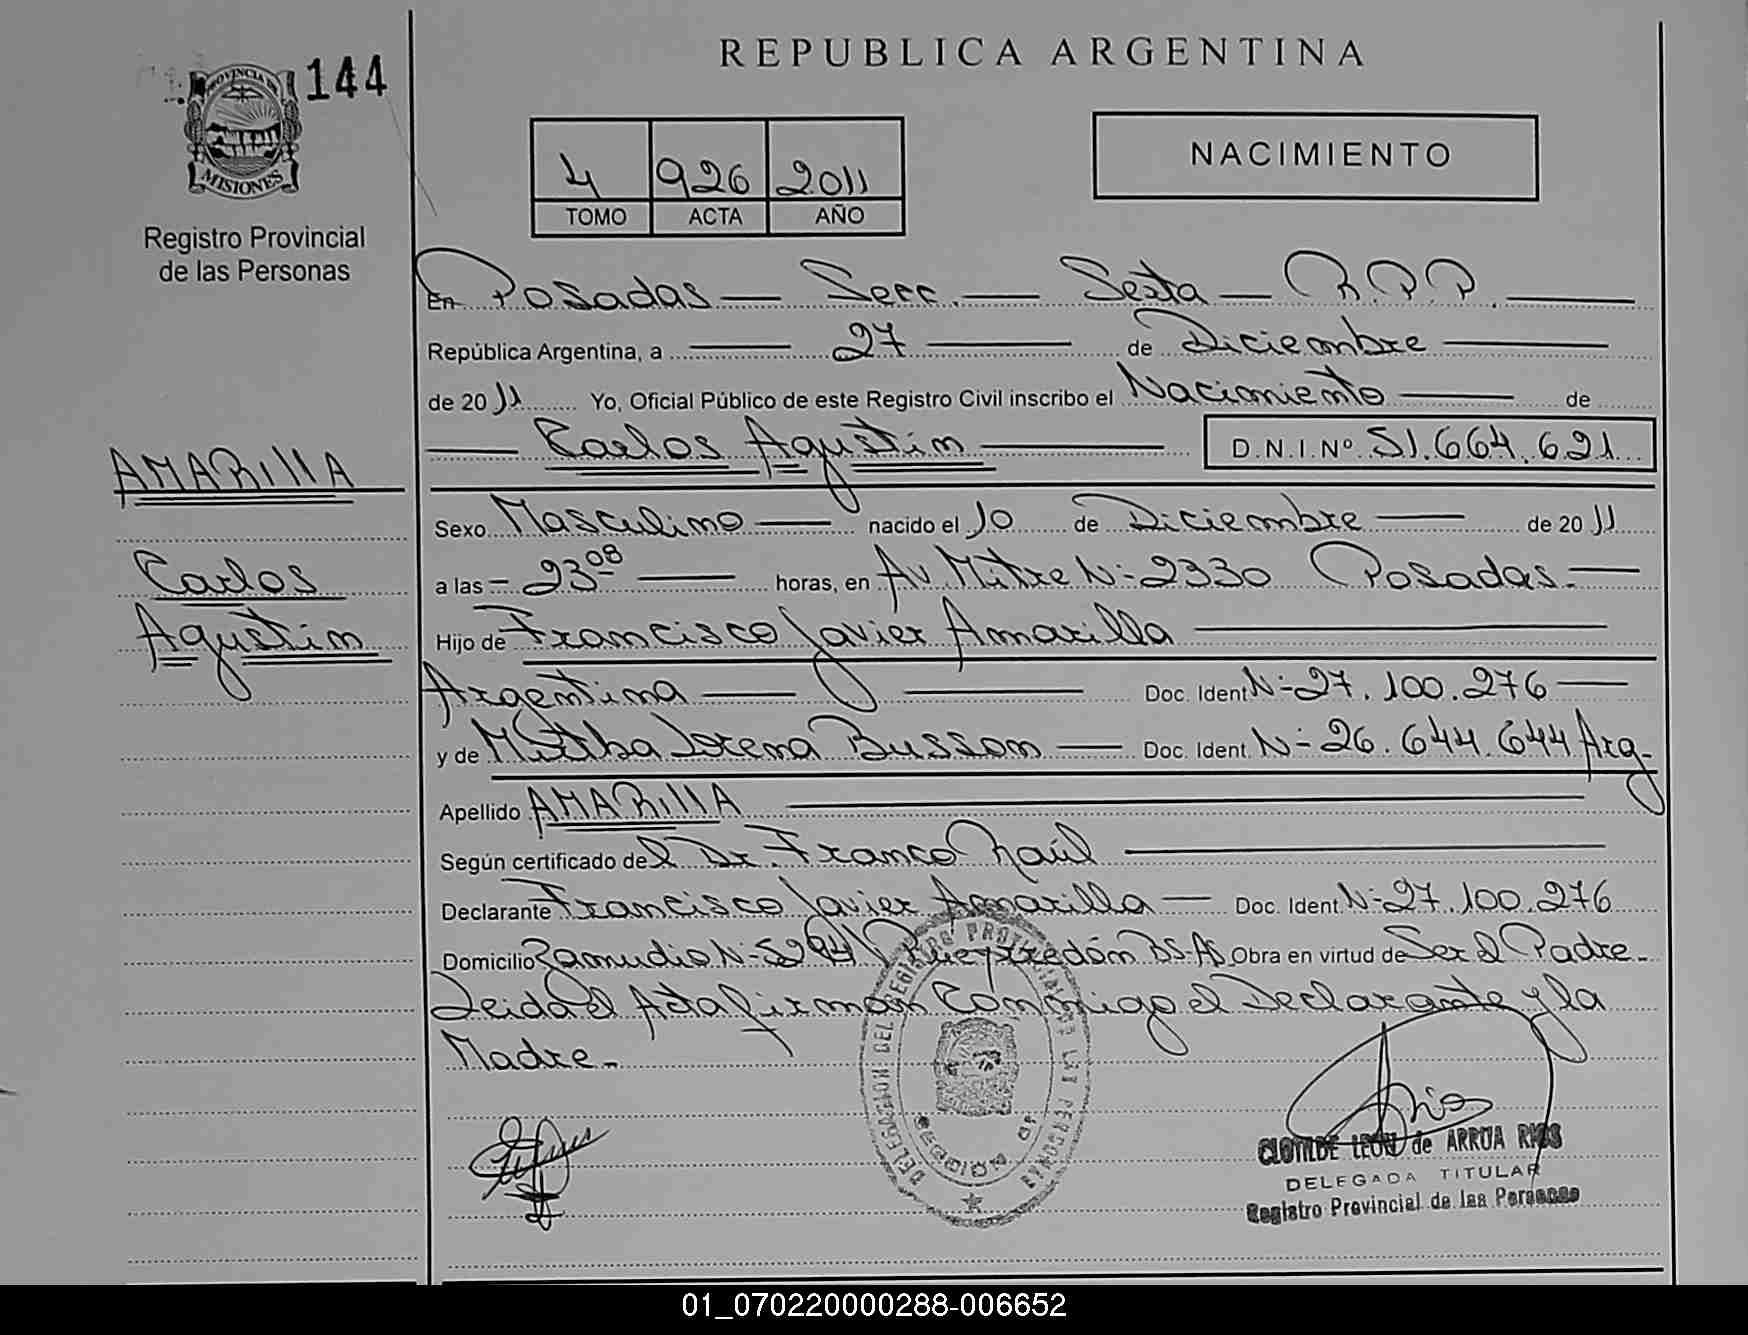 144
PROVINCIA DE
MISIONES
Registro Provincial
de las Personas
AMARILLA
Carlos
Agustín
REPUBLICA ARGENTINA
4 926 2011
TOMO ACTA AÑO
NACIMIENTO
En Posadas — Secc. — Sexta — R.P.P. —
República Argentina, a — 27 — de Diciembre —
de 2011 Yo, Oficial Público de este Registro Civil inscribo el Nacimiento — de
— Carlos Agustín — D.N.I.Nº 51.664.621
Sexo Masculino — nacido el 10 de Diciembre — de 2011
a las – 23 08 — horas, en Av. Mitre N- 2330 Posadas. —
Hijo de Francisco Javier Amarilla —
Argentina — — Doc. Ident N- 27.100.276 —
y de Mirtha Lorena Busson — Doc. Ident. N- 26.644.644 Arg-
Apellido AMARILLA —
Según certificado del Dr. Franco Raúl —
Declarante Francisco Javier Amarilla — Doc. Ident. N- 27.100.276
Domicilio Zamudio N- Pueyrredón BS-AS Obra en virtud de Ser el Padre.
Leida el Acta firman Conmigo el Declarante y la
Madre.-
DELEGACION DEL REGISTRO PROVINCIAL DE LAS PERSONAS
CLOTILDE LEON de ARRUA RIOS
DELEGADA TITULAR
Registro Provincial de las Personas
01_070220000288-006652